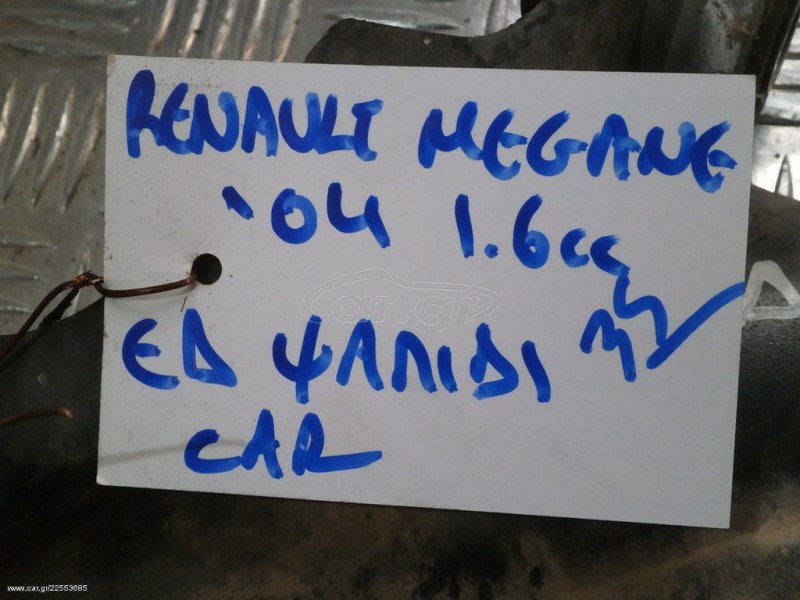 RENAULT MEGANE
'04 1.6cc
car.gr
ΕΔ ΨΑΛΙΔΙ
CAR
www.car.gr/22553685